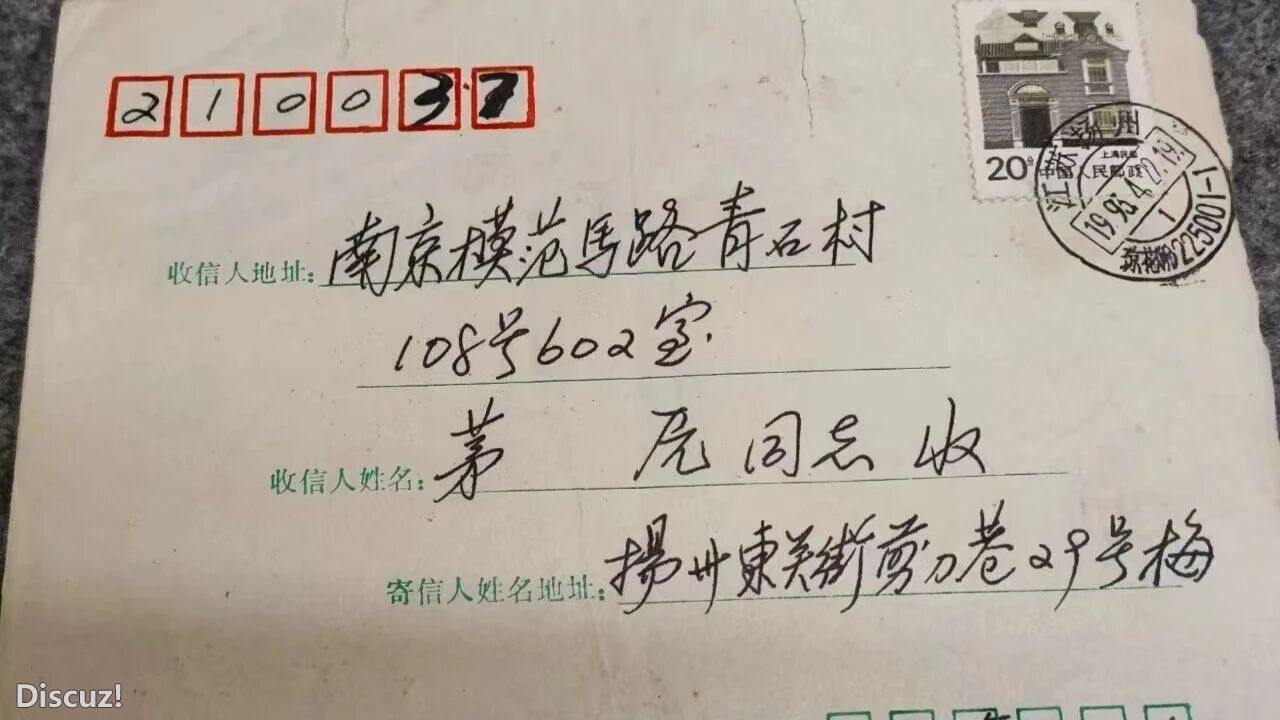 210037
上海民居
20分 中国人民邮政
江苏扬州
1995.4.2.19
1
琼花观225001-1
收信人地址: 南京模范馬路青石村
108号602室
收信人姓名: 茅 同志收
寄信人姓名地址: 揚州東关街剪刀巷29号梅
Discuz!